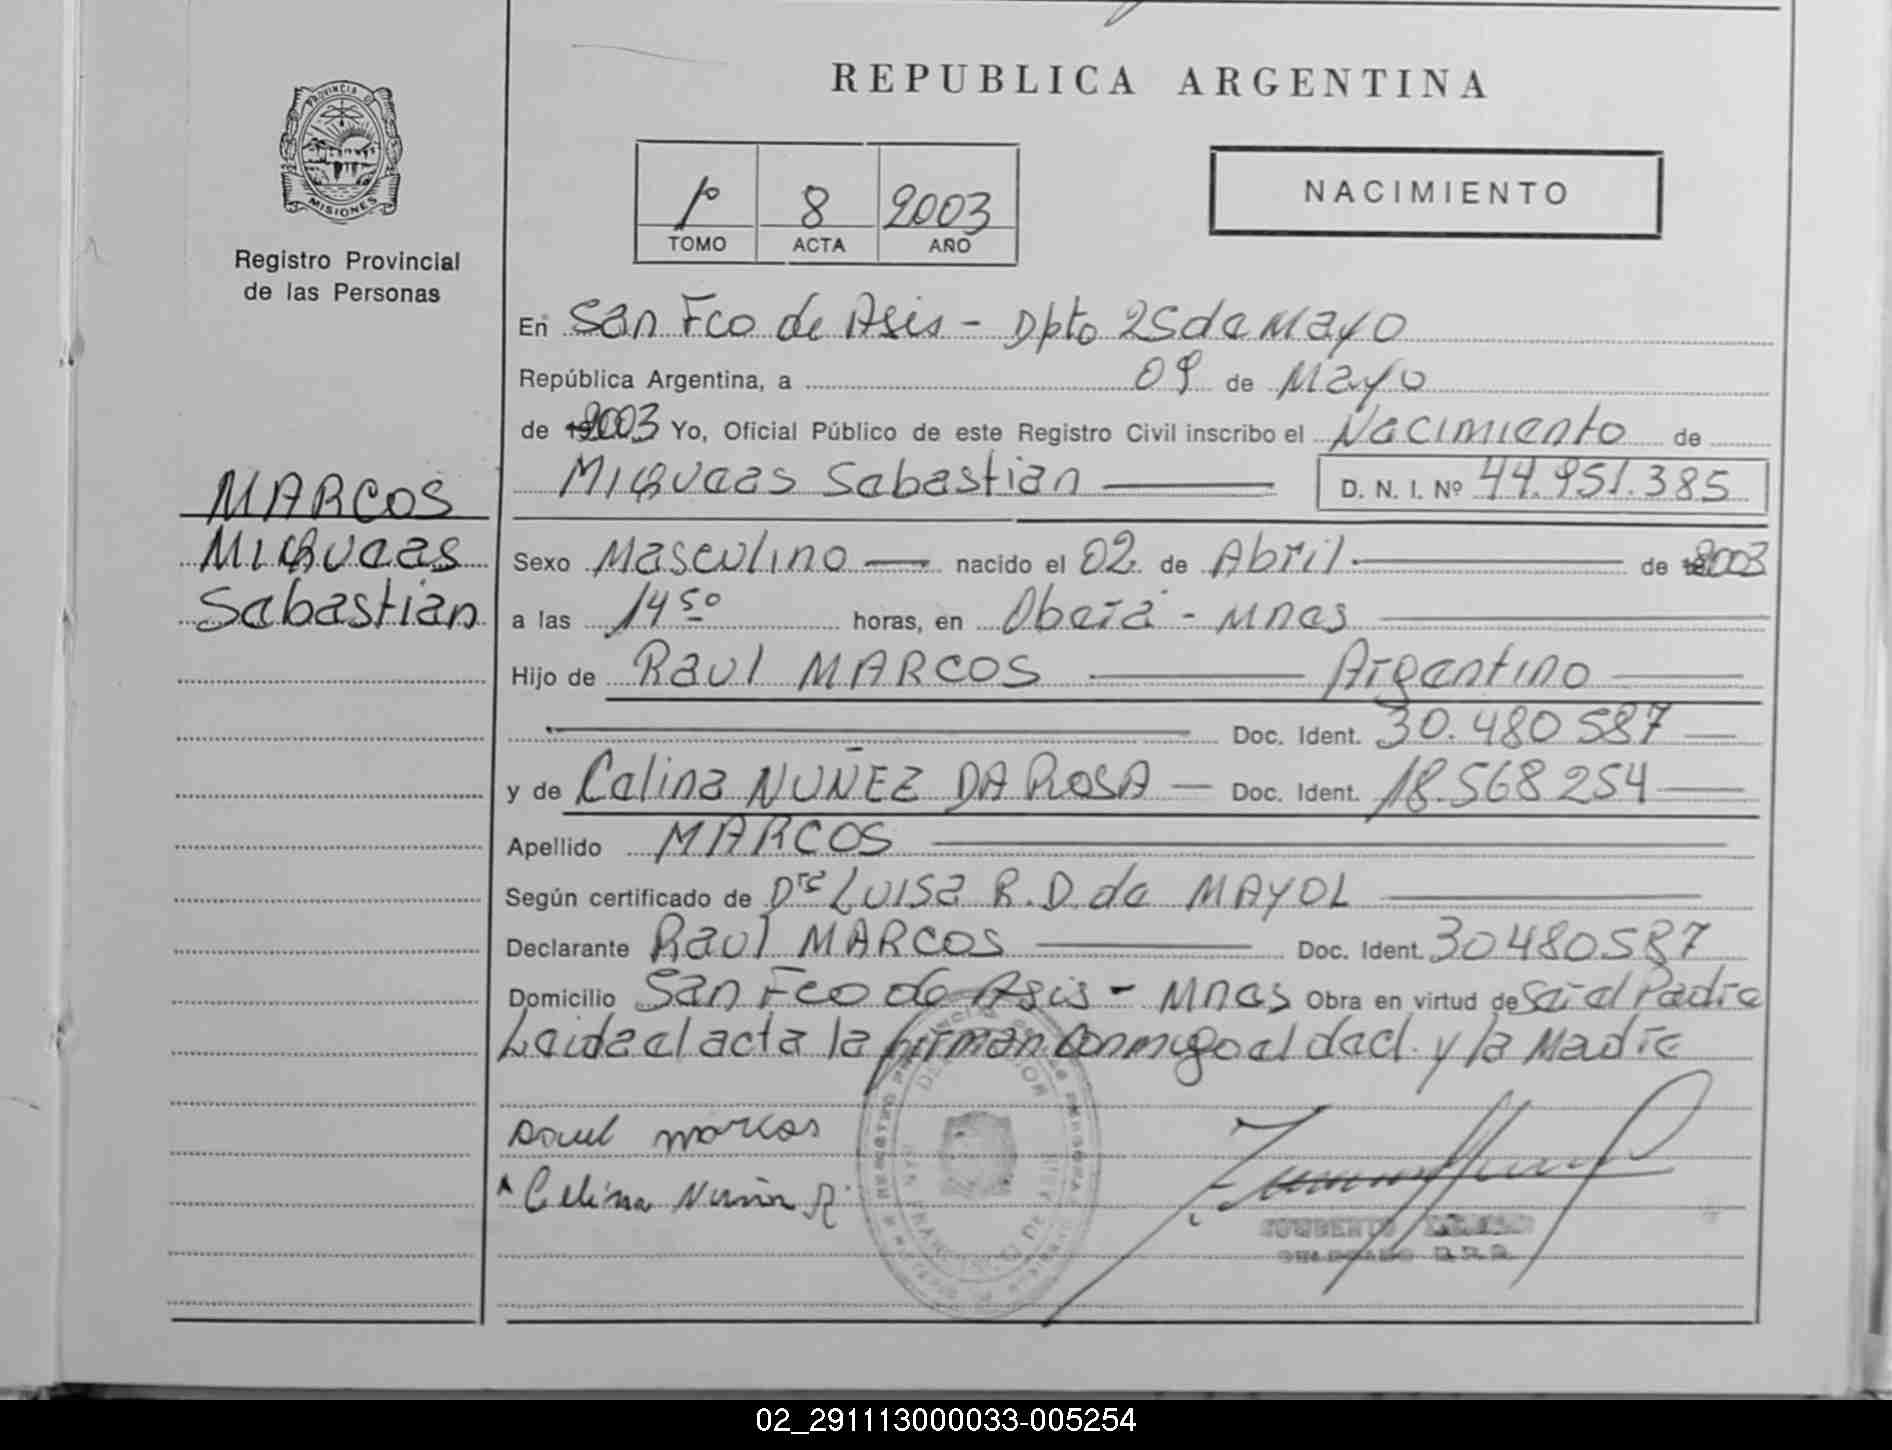 REPUBLICA ARGENTINA
PROVINCIA D
MISIONES
Registro Provincial
de las Personas
1º 8 2003
TOMO ACTA AÑO
NACIMIENTO
En San Fco de Asis - Dpto 25 de Mayo
República Argentina, a 09 de Mayo
de 2003 Yo, Oficial Público de este Registro Civil inscribo el Nacimiento de
Miqueas Sebastian D. N. I. Nº 44.951.385
MARCOS
Miqueas
Sebastian
Sexo Masculino nacido el 02 de Abril de 2003
a las 14 50 horas, en Oberá - Mnes
Hijo de Raul MARCOS Argentino
Doc. Ident. 30.480 587
y de Celina NUÑEZ DA ROSA Doc. Ident. 18.568 254
Apellido MARCOS
Según certificado de Drª LUISA R. D. de MAYOL
Declarante Raul MARCOS Doc. Ident. 30480587
Domicilio San Fco de Asis - Mnes Obra en virtud de Ser el Padre
Leida el acta la firman conmigo el dacl. y la Madre
Raul Marcos
Celina
02_291113000033-005254